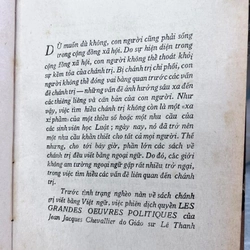 DÙ muốn dù không, con người cũng phải sống
trong cộng đồng xã hội. Do sự hiện diện trong
cộng đồng xã hội, con người không thể thoát khỏi
sự kềm tỏa của chánh trị. Bị chánh trị chi phối, con
người không thể đóng vai bàng quan trước các vấn
đề chánh trị — những vấn đề ảnh hưởng sâu xa đến
các thiêng liêng và căn bản của con người. Như vậy,
tìm hiểu chánh trị không những không còn là một «xa
xỉ phẩm» của một thiểu số hoặc một nhu cầu của
các sinh viên học Luật ; ngày nay, nó đã trở nên
một nhu cầu khẩn thiết cho tất cả mọi người. Thế
nhưng, cho tới bây giờ, phần lớn các sách về chánh
trị đều viết bằng ngoại ngữ. Do đó, các giới
không am tường ngoại ngữ gặp rất nhiều trở ngại,
trong công việc tìm hiểu các vấn đề liên quan đến chánh
trị.
Trước tình trạng nghèo nàn về sách chánh
trị viết bằng Việt ngữ, việc phiên dịch quyển LES
GRANDES OEUVRES POLITIQUES của
Jean Jacques Chevallier do Giáo sư Lê Thanh